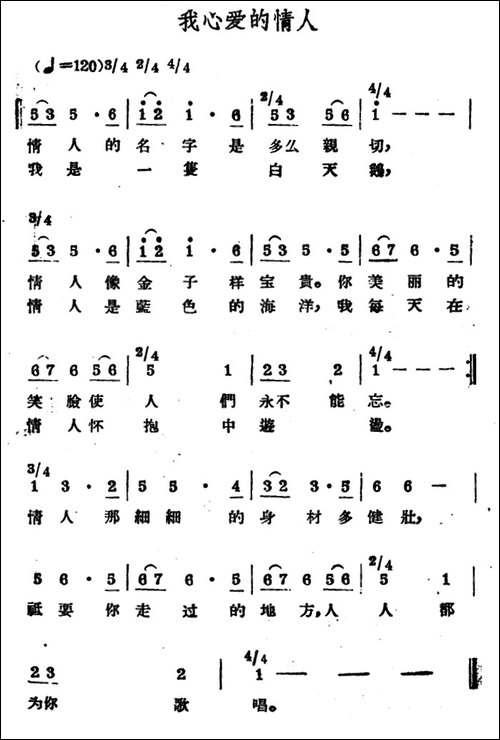 我心爱的情人
(♩=120)3/4 2/4 4/4
5 3 5 · 6 | 1 2 1 · 6 | 2/4 5 3 5 6 | 4/4 1 — — — |
情人的名字是多么親切,
我是一隻白天鵝,
3/4
5 3 5 · 6 | 1 2 1 · 6 | 5 3 5 · 5 | 6 7 6 · 5 |
情人像金子样宝貴。你美丽的
情人是藍色的海洋,我每天在
6 7 6 5 6 | 2/4 5 1 | 2 3 2 | 4/4 1 — — — :|
笑臉使人們永不能忘。
情人怀抱中遊盪。
3/4
1 3 · 2 | 5 5 · 4 | 3 2 3 · 5 | 6 6 — |
情人那細細的身材多健壯,
5 6 · 5 | 6 7 6 · 6 | 6 7 6 5 6 | 2/4 5 1 |
祗要你走过的地方,人人都
2 3 2 | 4/4 1 — — — ‖
为你歌唱。